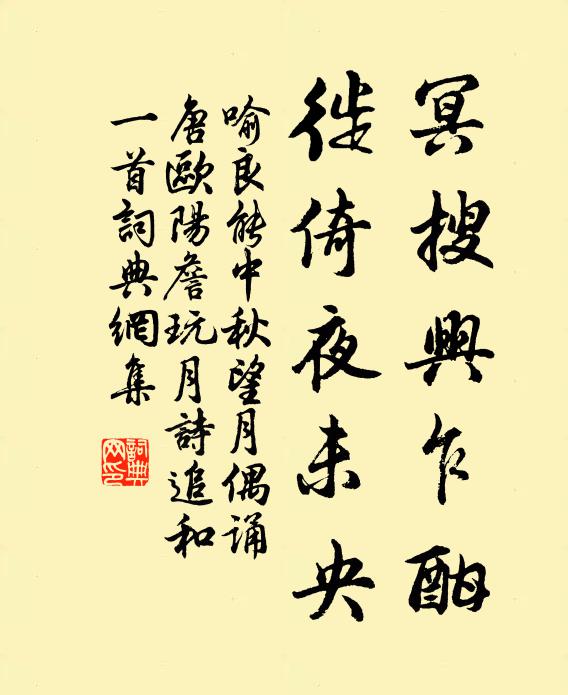 冥搜興乍酣
徙倚夜未央
喻良能中秋望月偶誦
唐歐陽詹玩月詩追和
一首詞典網集
詞典網印